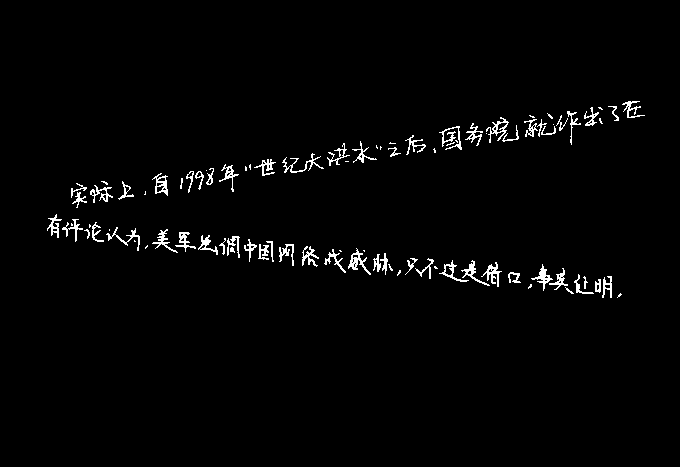 实际上,自1998年“世纪大洪水”之后,国务院就作出了在
有评论认为,美军强调中国网络战威胁,只不过是借口,事实证明,